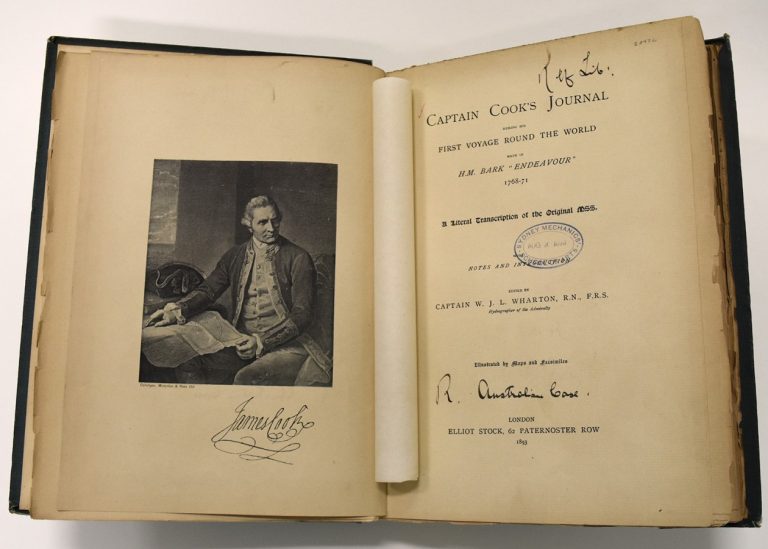 James Cook
Ref Lib.
CAPTAIN COOK'S JOURNAL
DURING HIS
FIRST VOYAGE ROUND THE WORLD
MADE IN
H.M. BARK "ENDEAVOUR"
1768-71
A Literal Transcription of the Original MSS.
SYDNEY MECHANICS'
SCHOOL OF ARTS
NOTES AND
EDITED BY
CAPTAIN W. J. L. WHARTON, R.N., F.R.S.
Hydrographer of the Admiralty
Illustrated by Maps and Facsimiles
R. Australian Case.
LONDON
ELLIOT STOCK, 62 PATERNOSTER ROW
1893